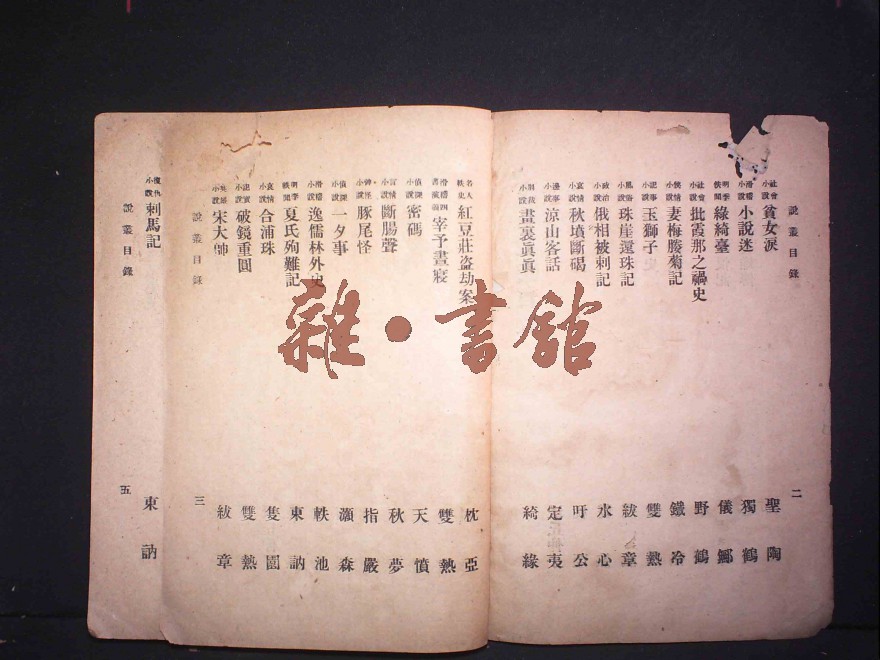 說叢目錄 二
社會小說 貧女淚 聖陶
滑稽小說 小說迷 獨鶴
明季軼聞 綠綺臺 儀鄦
社會小說 批霞那之禍史 野鶴
俠情小說 妻梅媵菊記 鐵冷
記事小說 玉獅子 雙熱
風俗小說 珠崖還珠記 紱章
政治小說 俄相被刺記 水心
哀情小說 秋墳斷碣 吁公
小說 涼山客話 定夷
小說 畫裏真真 綺緣
名人軼史 紅豆莊盜劫案 枕亞
滑稽四書演義 宰予晝寢 雙熱
偵探小說 密碼 天憤
言情小說 斷腸聲 秋夢
神怪小說 豚尾怪 指嚴
偵探小說 一夕事 灝森
滑稽小說 逸儒林外史 軼池
明季軼聞 夏氏殉難記 東訥
哀情小說 合浦珠 隻園
記實小說 破鏡重圓 雙熱
小說 宋大帥 紱章
說叢目錄 三
復仇小說 刺馬記 東訥
說叢目錄 五
雜·書館